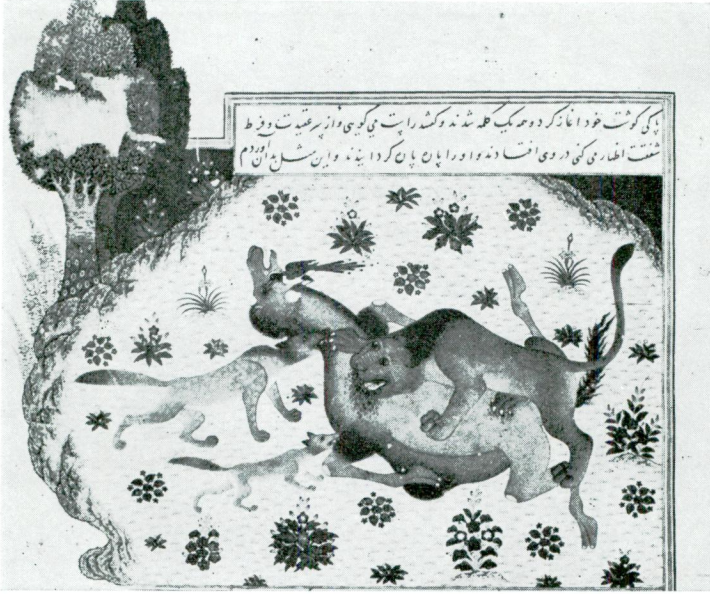 پاکی گوشت خود اغاز کرد و همه یک کلمه شدند و گفتند راست می گوی و از سر عقیدت و فرط
شفقت اظهار می کنی در وی افتادند و او را پاره پاره کردانیدند و این مثل بدان آوردم